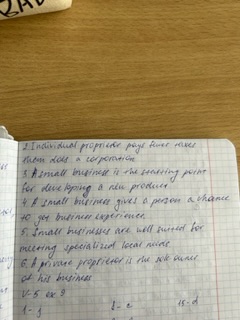 2. Individual proprietor pays fewer taxes
than does a corporation
3. A small business is the starting point
for developing a new product
4. A small business gives a person a chance
to get business experience.
5. Small businesses are well suited for
meeting specialized local needs
6. A private proprietor is the sole owner
of his business
V-5 ex 9
1-j 8-c 15-d